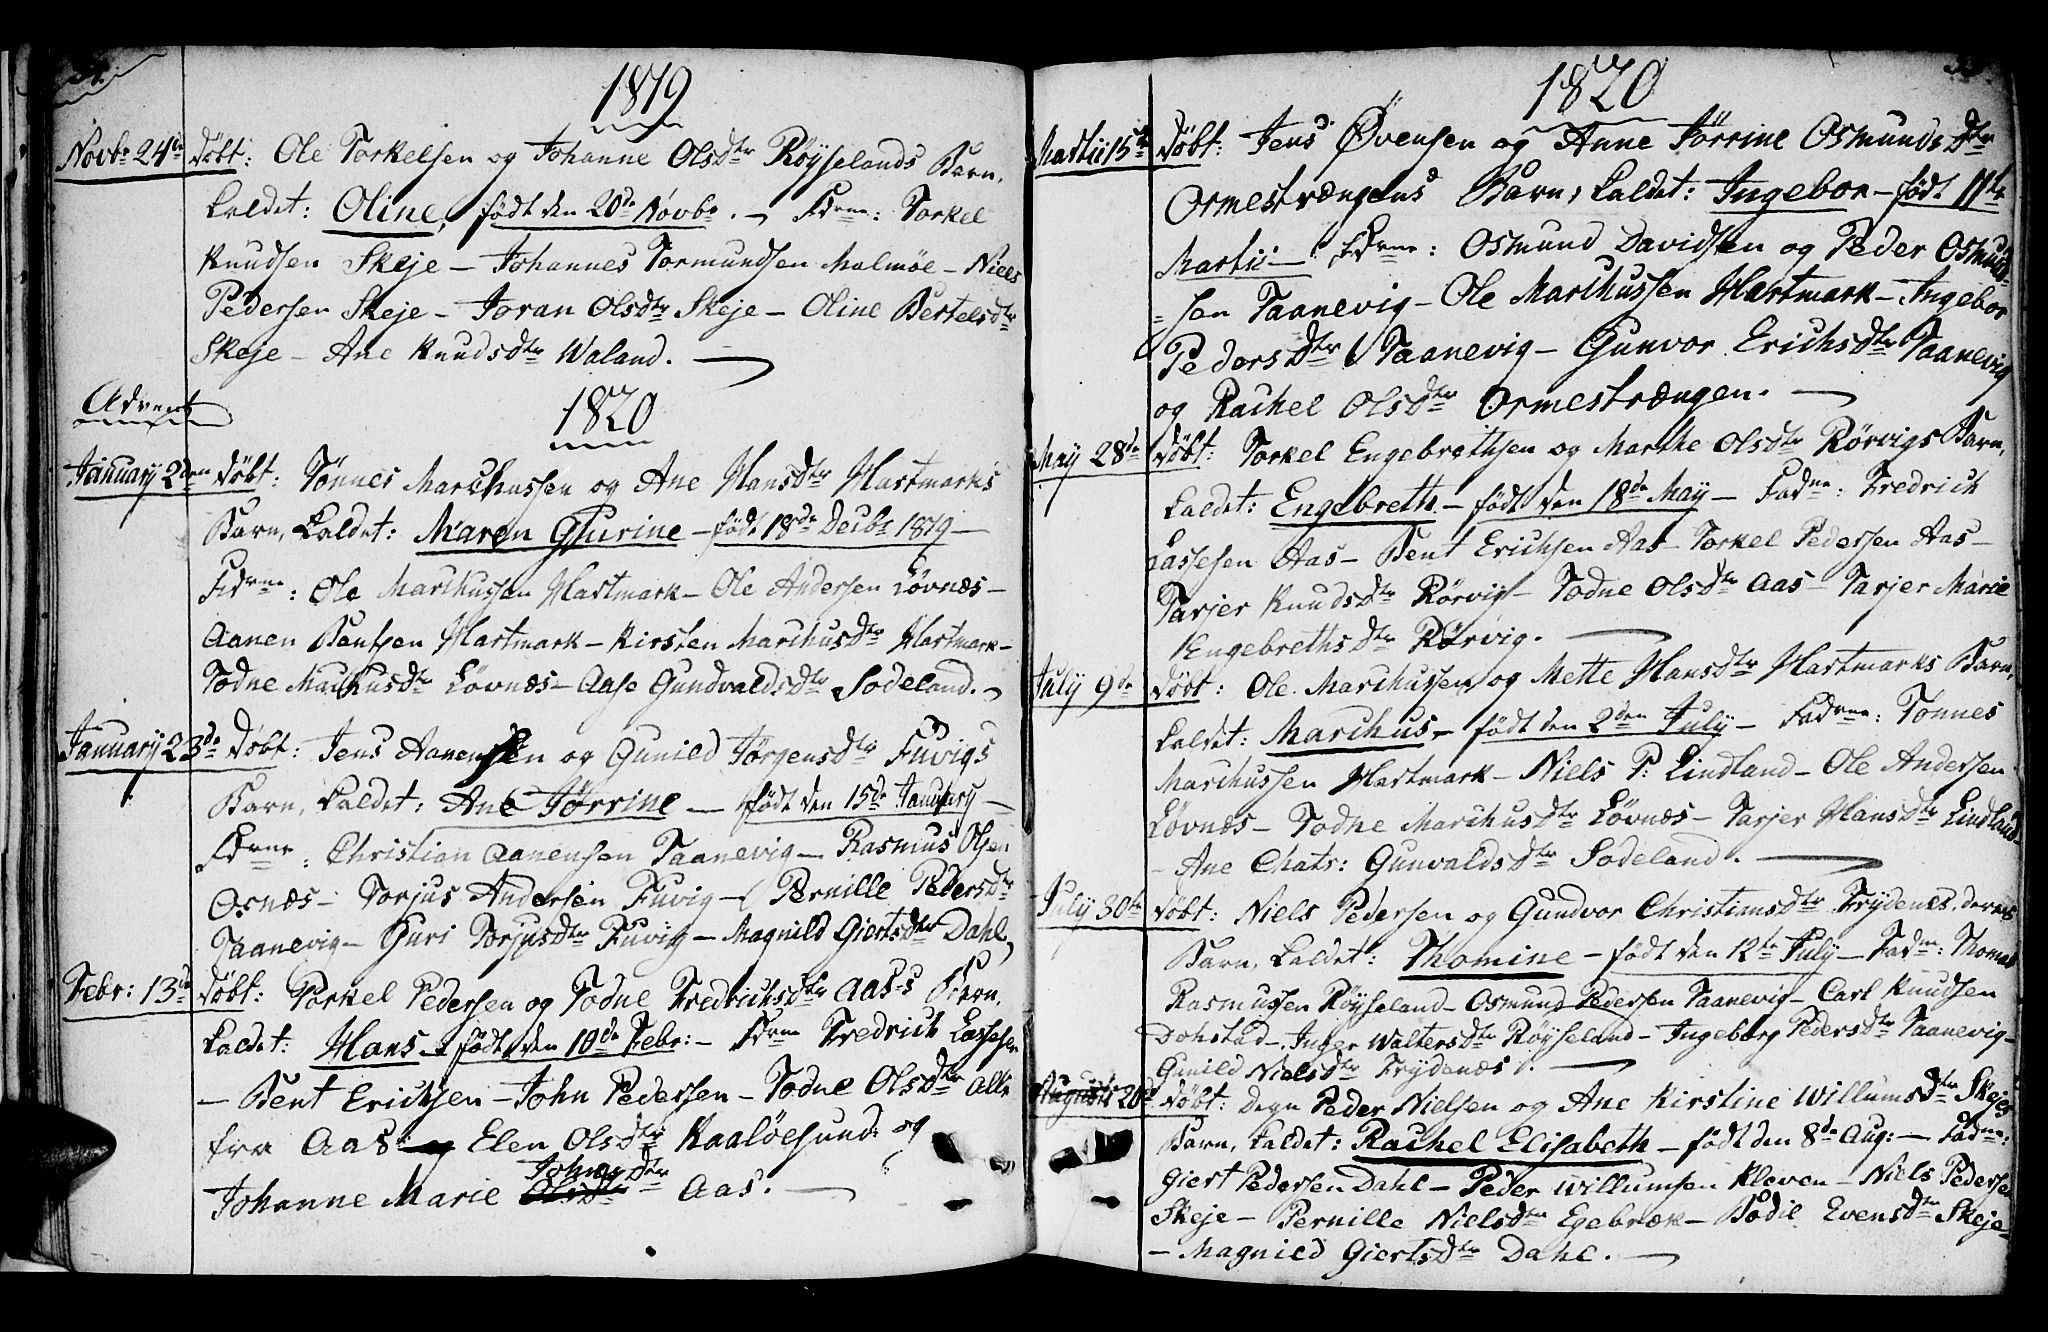 1819
Novbr 24de Døbt: Ole Torkelsen og Johanne Olsdtr Røyselands Barn,
kaldet: Oline, født den 20de Novbr. — Fdrne: Torkel
Knudsen Skeje — Johannes Tormundsen Malmöe — Niels
Pedersen Skeje — Joran Olsdtr Skeje — Oline Bertelsdtr
Skeje — Ane Knudsdtr Waland. —
Advent
1820
January 2den Døbt: Tønnes Marchussen og Ane Hansdtr Hartmarks
Barn, kaldet: Maren Gurine — født 18de Decbr 1819 —
Fdrne: Ole Marchussen Hartmark — Ole Andersen Løvnæs —
Aanen Bentsen Hartmark — Kirsten Marchusdtr Hartmark —
Todne Machusdtr Løvnæs — Aase Gundvaldsdtr Sodeland. —
January 23de Døbt: Jens Aanensen og Gunild Jørgensdtr Fuvigs
Barn, kaldet: Ane Jørrine — født den 15de January —
Fdrne: Christian Aanensen Taanevig — Rasmus Olsen
Osnæs — Torjus Andersen Fuvig — Pernille Pedersdtr
Taanevig — Guri Torjusdtr Fuvig — Magnild Giertsdtr Dahl,
Febr: 13de Døbt: Torkel Pedersen og Todne Fredrichsdtr Aas-s Barn,
kaldet: Hans — født den 10de Febr: — Fdrne Fredrich Lassesen
— Bent Erichsen — John Pedersen — Todne Olsdtr alle
fra Aas — og Elen Olsdtr Kaalöesund: og
Johanne Marie Johnsdtr Aas. —
1820
Martii 15de Døbt: Jens Øvensen og Anne Jørrine Osmundsdtr
Ormestrængens Barn, kaldet: Ingebor — født 11te
Martii — Fdrne: Osmund Davidsen og Peder Osmund=
=sen Taanevig — Ole Marchussen Hartmark — Ingebor
Pedersdtr Taanevig — Gunvor Erichsdtr Taanevig
og Rachel Olsdtr Ormestrængen. —
May 28de Døbt: Torkel Engebrethsen og Marthe Olsdtr Rørvigs Barn,
kaldet: Engebreth — født den 18de May — Fadne: Fredrich
Lassesen Aas — Bent Erichsen Aas — Torkel Pedersen Aas —
Tarjer Knudsdtr Rørvig — Todne Olsdtr Aas — Tarjer Marie
Engebrethsdtr Rørvig. —
July 9de Døbt: Ole Marchussen og Mette Hansdtr Hartmarks Barn,
kaldet: Marchus — født den 2den July — Fadrne: Tønnes
Marchussen Hartmark — Niels P: Lindland — Ole Andersen
Løvnæs — Todne Marchusdtr Løvnæs — Tarjer Hansdtr Lindland
— Ane Chatr: Gunvaldsdtr Sodeland. —
July 30te Døbt: Niels Pedersen og Gundvor Christiansdtr Frydenes deres
Barn, kaldet: Thomine — født den 12te July — Fadne: Thomas
Rasmussen Røyseland — Osmund Pedersen Taanevig — Carl Knudsen
Dohstad — Inger Waltersdtr Røyseland — Ingeborg Pedersdtr Taanevig —
Gunild Nielsdtr Frydenæs. —
Augusti 20de Døbt: Degn Peder Nielsen og Ane Kirstine Willumsdtr Skejes
Barn, kaldet: Rachel Elisabeth — født den 8de Aug: — Fadne:
Giert Pedersen Dahl — Peder Willumsen Kleven — Niels Pedersen
Skeje — Pernille Nielsdtr Egebræk — Bodil Evensdtr Skeje —
— Magnild Giertsdtr Dahl. —